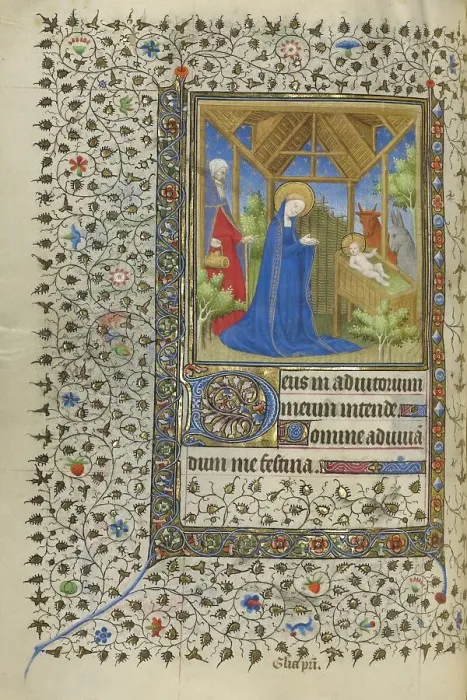 Deus in adiutorium
meum intende
Domine adiuua
dum me festina.
Gl'ia pri.